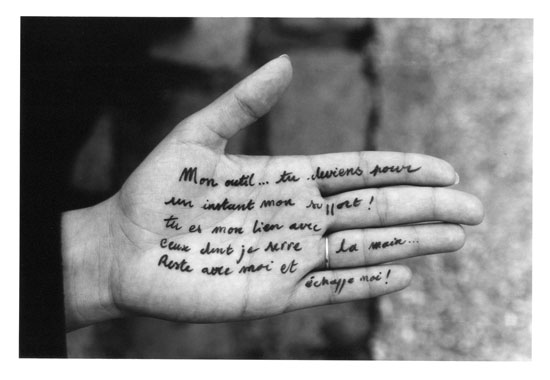 Mon outil... tu deviens pour
un instant mon support !
tu es mon lien avec
ceux dont je serre la main...
Reste avec moi et échappe moi !